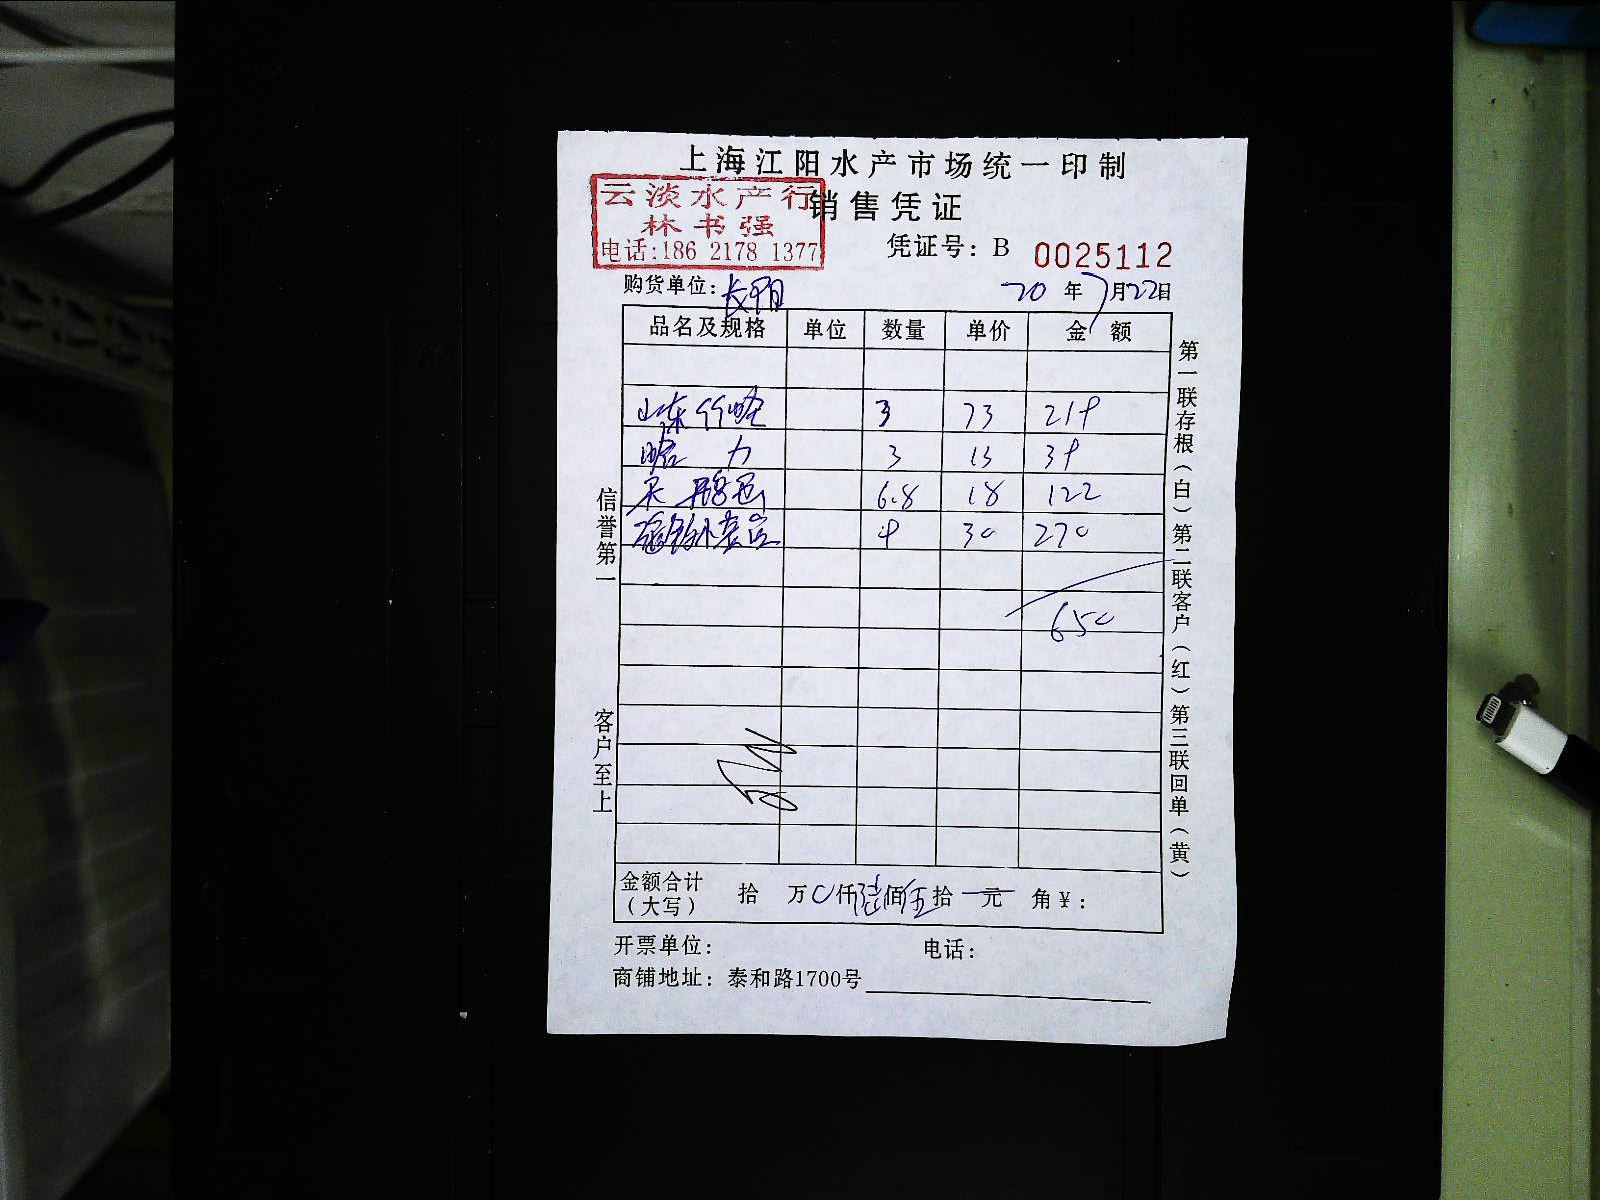 上海江阳水产市场统一印制
云淡水产行
林书强
电话:186 2178 1377
销售凭证
凭证号: B 0025112
购货单位: 长阳
20 年 7 月 22 日
品名及规格 单位 数量 单价 金 额
山东竹蛏 3 73 219
蛤 3 13 39
6.8 18 122
9 30 270
650
金额合计(大写) 拾 万 0 仟 陆 佰 伍 拾 元 角 ¥:
开票单位: 电话:
商铺地址: 泰和路1700号
信誉第一
客户至上
第一联存根(白)第二联客户(红)第三联回单(黄)